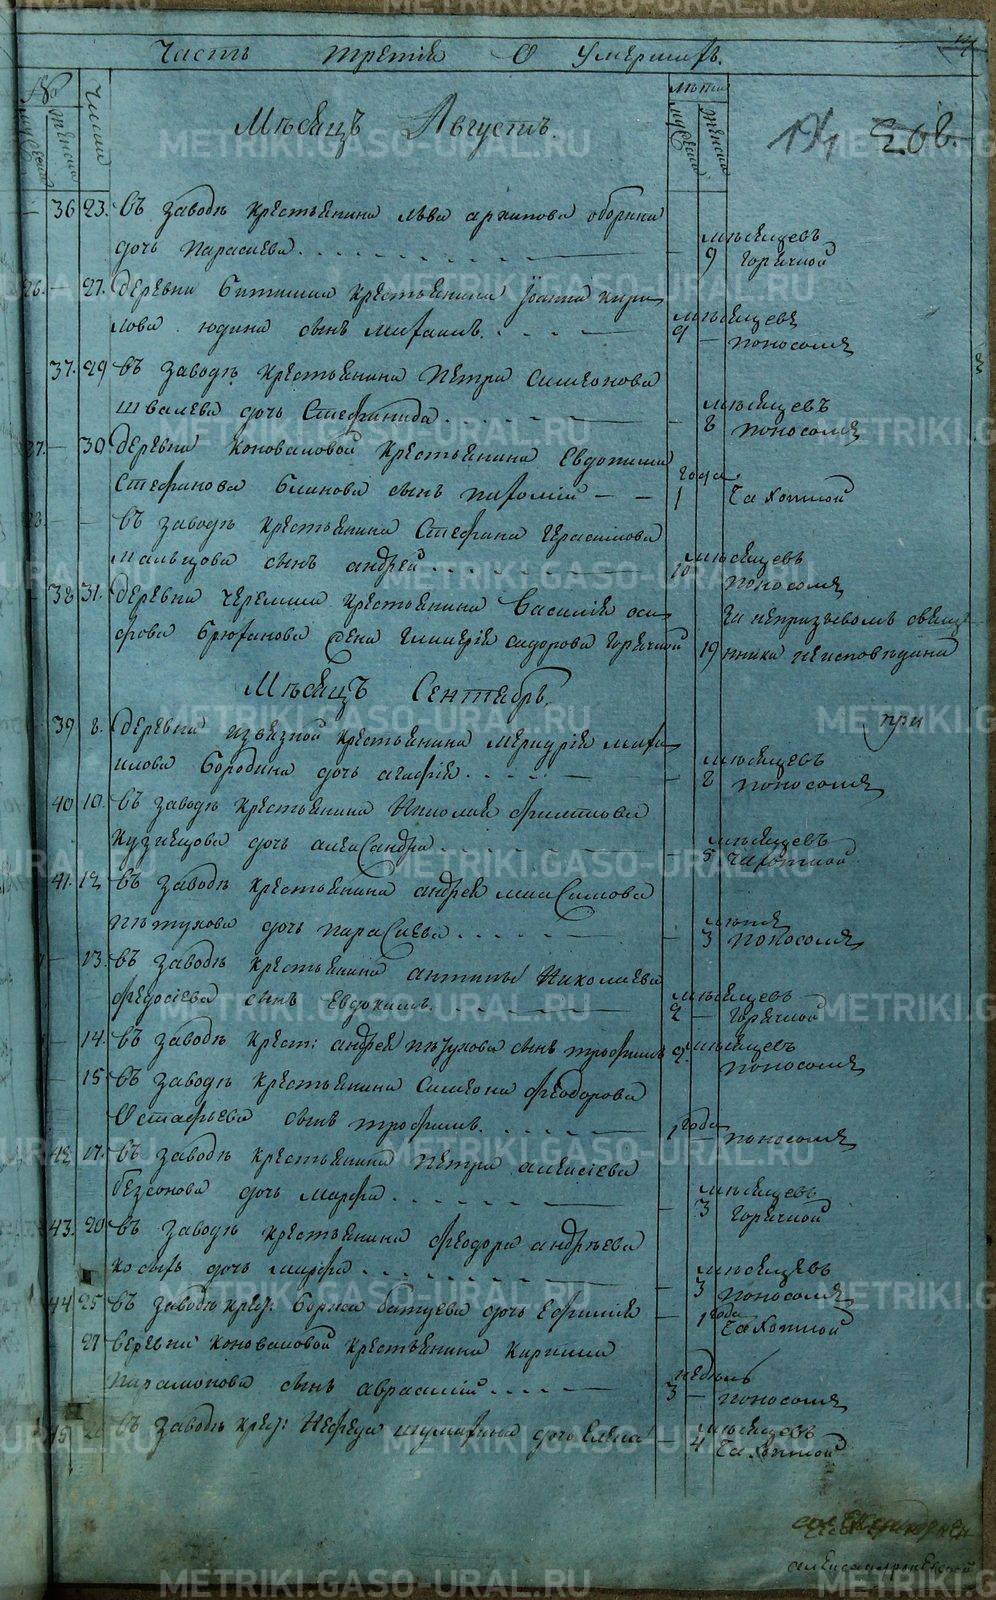 Часть третія О умершихъ.
№ Число
Мѣсяцъ Августъ.
лѣта
194 208.
36 23. Въ заводѣ крестьянина Льва Архипова Оборина
дочь Параскева 9 мѣсяцевъ горячкой
26. 27. деревни крестьянина Іоанна Кири
лова Юдина сынъ Михаилъ. 9 мѣсяцевъ поносомъ
37. 29 Въ заводѣ крестьянина Петра Симеонова
Швалева дочь Стефанида. 8 мѣсяцевъ поносомъ
27. 30 деревни Коноваловой крестьянина Евдокима
Стефанова Блинова сынъ 1 года Чахоткой
28. Въ заводѣ крестьянина Стефана Герасимова
Мальцова сынъ Андрей 10 мѣсяцевъ поносомъ
38 31. деревни Черемиш крестьянина Василія Оси
фова жена Гликерія Сидорова горячкой 19 За непризывомъ свяще
нника неисповѣдана
Мѣсяцъ Сентябрь.
при
39 8. деревни крестьянина Меркурія Миха
илова Бородина дочь Агафія. 8 мѣсяцевъ поносомъ
40 10. Въ заводѣ крестьянина Николая Филиппова
Кузнецова дочь Александра 5 мѣсяцевъ Чахоткой
41. 12 Въ заводѣ крестьянина Андрея Максимова
Пѣтухова дочь Параскева 3 лѣтъ поносомъ
13. Въ заводѣ крестьянина Антипы Николаева
Федосіева сынъ Евдокимъ. 2 мѣсяцевъ горячкой
14. Въ заводѣ крест: Андрея Пѣтухова сынъ Трофимъ 9 мѣсяцевъ поносомъ
15 Въ заводѣ крестьянина Симеона Феодорова
Остафьева сынъ Трофимъ. 1 года поносомъ
42 17. Въ заводѣ крестьянина Петра Алексіева
Безсонова дочь Марфа 3 мѣсяцевъ горячкой
43. 20 Въ заводѣ крестьянина Феодора Андрѣева
дочь Марфа 3 мѣсяцевъ поносомъ
44 25 Въ заводѣ крест: дочь Ефимія 1 года Чахоткой
27 деревни Коноваловой крестьянина Кирилла
Парамонова сынъ 3 недѣль поносомъ
45 Въ заводѣ крест: дочь Елена 4 мѣсяцевъ Чахоткой
METRIKI.GASO-URAL.RU